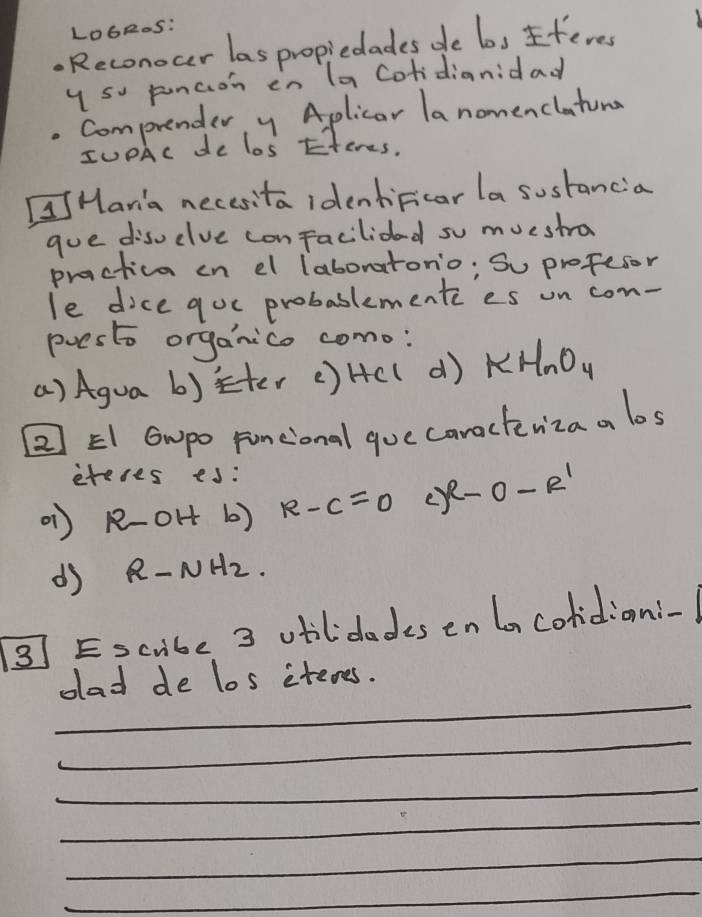 LOGROS:
• Reconocer las propiedades de los Éteres
y su función en la Cotidianidad
• Comprender y Aplicar la nomenclatura
IUPAC de los Éteres.
1 María necesita identificar la sustancia
que disuelve con facilidad su muestra
practica en el laboratorio; Su profesor
le dice que probablemente es un com-
puesto orgánico como:
a) Agua b) Éter c) HCl d) KMnO4
2 El Grupo funcional que caracteriza a los
éteres es:
a) R-OH b) R-C=O c) R-O-R'
d) R-NH2.
3 Escribe 3 utilidades en la cotidiani-
dad de los éteres.